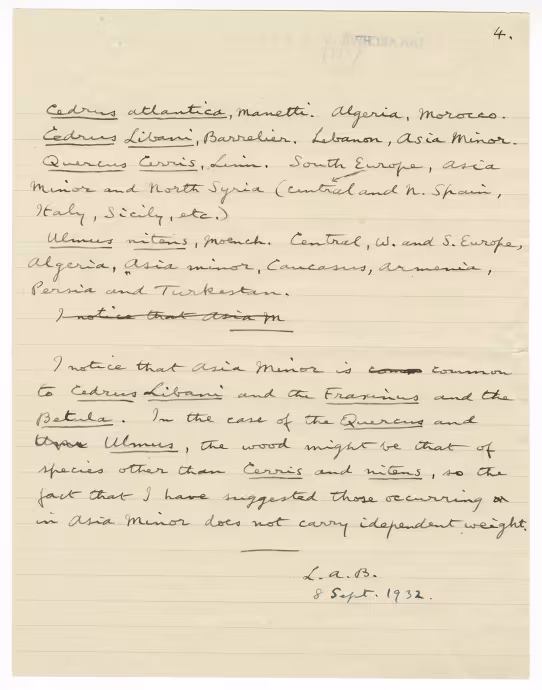 4.
Cedrus atlantica, Manetti. Algeria, Morocco.
Cedrus Libani, Barrelier. Lebanon, Asia Minor.
Quercus Cerris, Linn. South Europe, Asia
Minor and North Syria (central and N. Spain,
Italy, Sicily, etc.)
Ulmus nitens, Moench. Central, W. and S. Europe,
Algeria, Asia Minor, Caucasus, Armenia,
Persia and Turkestan.
I notice that Asia M
I notice that Asia Minor is common
to Cedrus Libani and the Fraxinus and the
Betula. In the case of the Quercus and
Ulmus, the wood might be that of
species other than Cerris and nitens, so the
fact that I have suggested those occurring
in Asia Minor does not carry idependent weight.
L.A.B.
8 Sept. 1932.